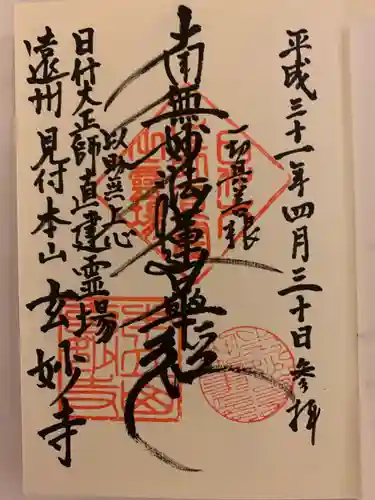 平成三十一年四月三十日参拝
一切具善根
南無妙法蓮華経
以助無上心
日什大正師直建霊場
遠州見付本山玄妙寺